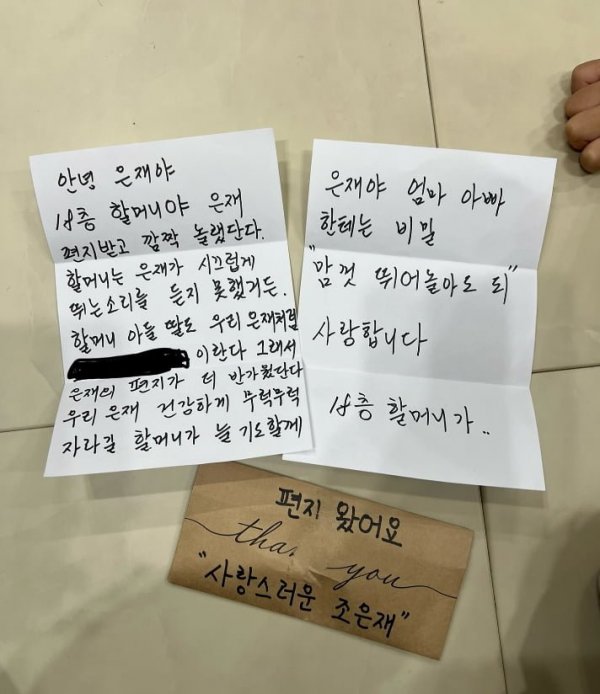 안녕 은재야
18층 할머니야 은재
편지받고 깜짝 놀랬단다.
할머니는 은재가 시끄럽게
뛰는소리를 듣지 못했거든.
할머니 아들 딸도 우리 은재처럼
이란다 그래서
은재의 편지가 더 반가웠단다
우리 은재 건강하게 무럭무럭
자라길 할머니가 늘 기도할께
은재야 엄마 아빠
한테는 비밀
"맘껏 뛰어놀아도 되"
사랑합니다
18층 할머니가..
편지 왔어요
thank you
"사랑스러운 조은재"